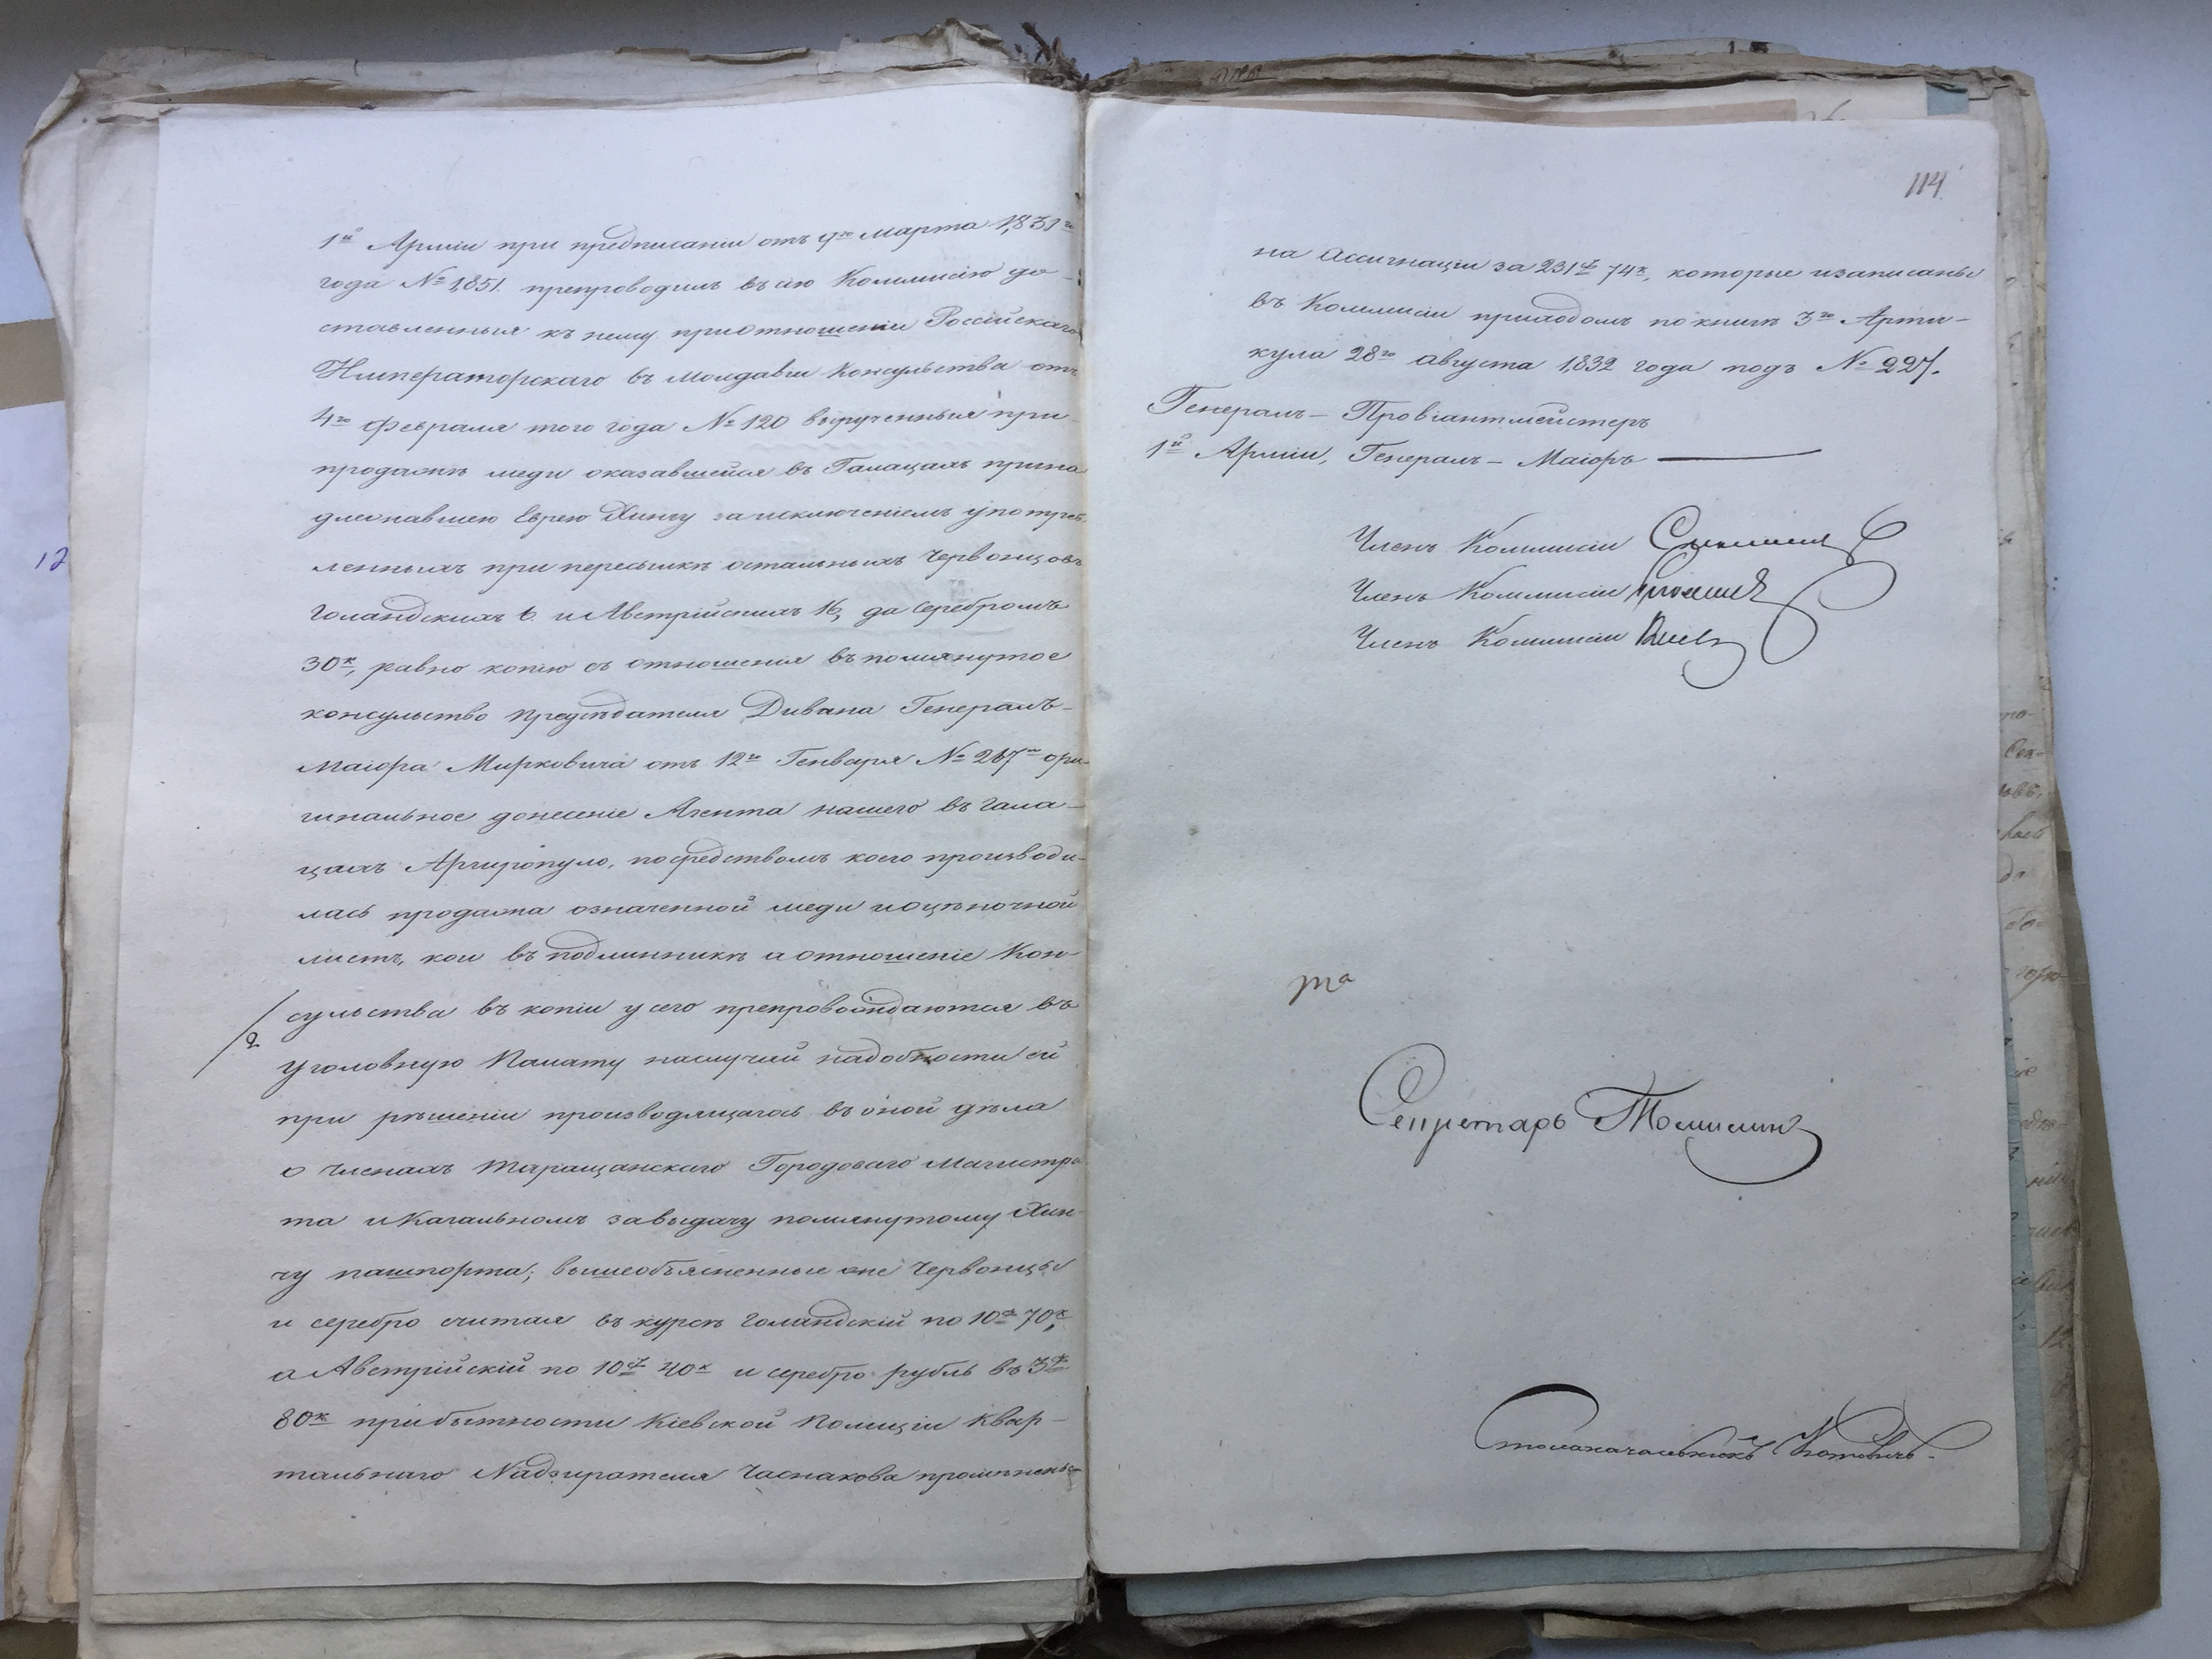 1й Арміи при предписаніи отъ 9го Марта 1831го
года № 1851. препроводилъ въ сію Коммисію до-
ставленныя къ нему при отношеніи Россійскаго
Императорскаго въ Молдавіи Консульства отъ
4го февраля того года № 120 вырученныя при
продажѣ меди оказавшейся въ Галацахъ прина
длежавшею Еврею Хинчу за исключеніемъ употреб
ленныхъ при пересылкѣ остальныхъ Червонцовъ
Голандскихъ 6. и Австрійскихъ 16, да серебромъ
30к, равно копію съ отношенія въ помянутое
консульство Предсѣдателя Дивана Генералъ-
Маіора Мирковича отъ 12го Генваря № 267м ори-
гинальное донесеніе Агента нашего въ Гала-
цахъ Аргиропуло, посредствомъ коего производи-
лась продажа означенной меди и оцѣночной
листъ, кои въ подлинникѣ а отношеніе Кон-
сульства въ копіи у сего препровождаются въ
Уголовную Палату на случай надобности ей
при рѣшеніи производящагось въ оной дѣла
о членахъ Таращанскаго Городоваго Магистра
та и Кагальномъ за выдачу помянутому Хин-
чу пашпорта; вышеобъясненные же Червонцы
и серебро считая въ курсѣ Голандскій по 10р 70к,
а Австрійскій по 10р 40к и серебро рубль въ 3р
80к при бытности Кіевской Полиціи Квар-
тальнаго Надзирателя Часнакова промѣнены
114.
на Ассигнаціи за 231р 74к, которые и записаны
въ Коммисіи приходомъ по книгѣ 3го Арти-
кула 28го августа 1832 года подъ № 227.
Генералъ- Провіантмейстеръ
1й Арміи, Генералъ- Маіоръ
Членъ Коммисіи
Членъ Коммисіи
Членъ Коммисіи
та
Секретарь Томилинъ
Столоначальникъ Котовичъ.